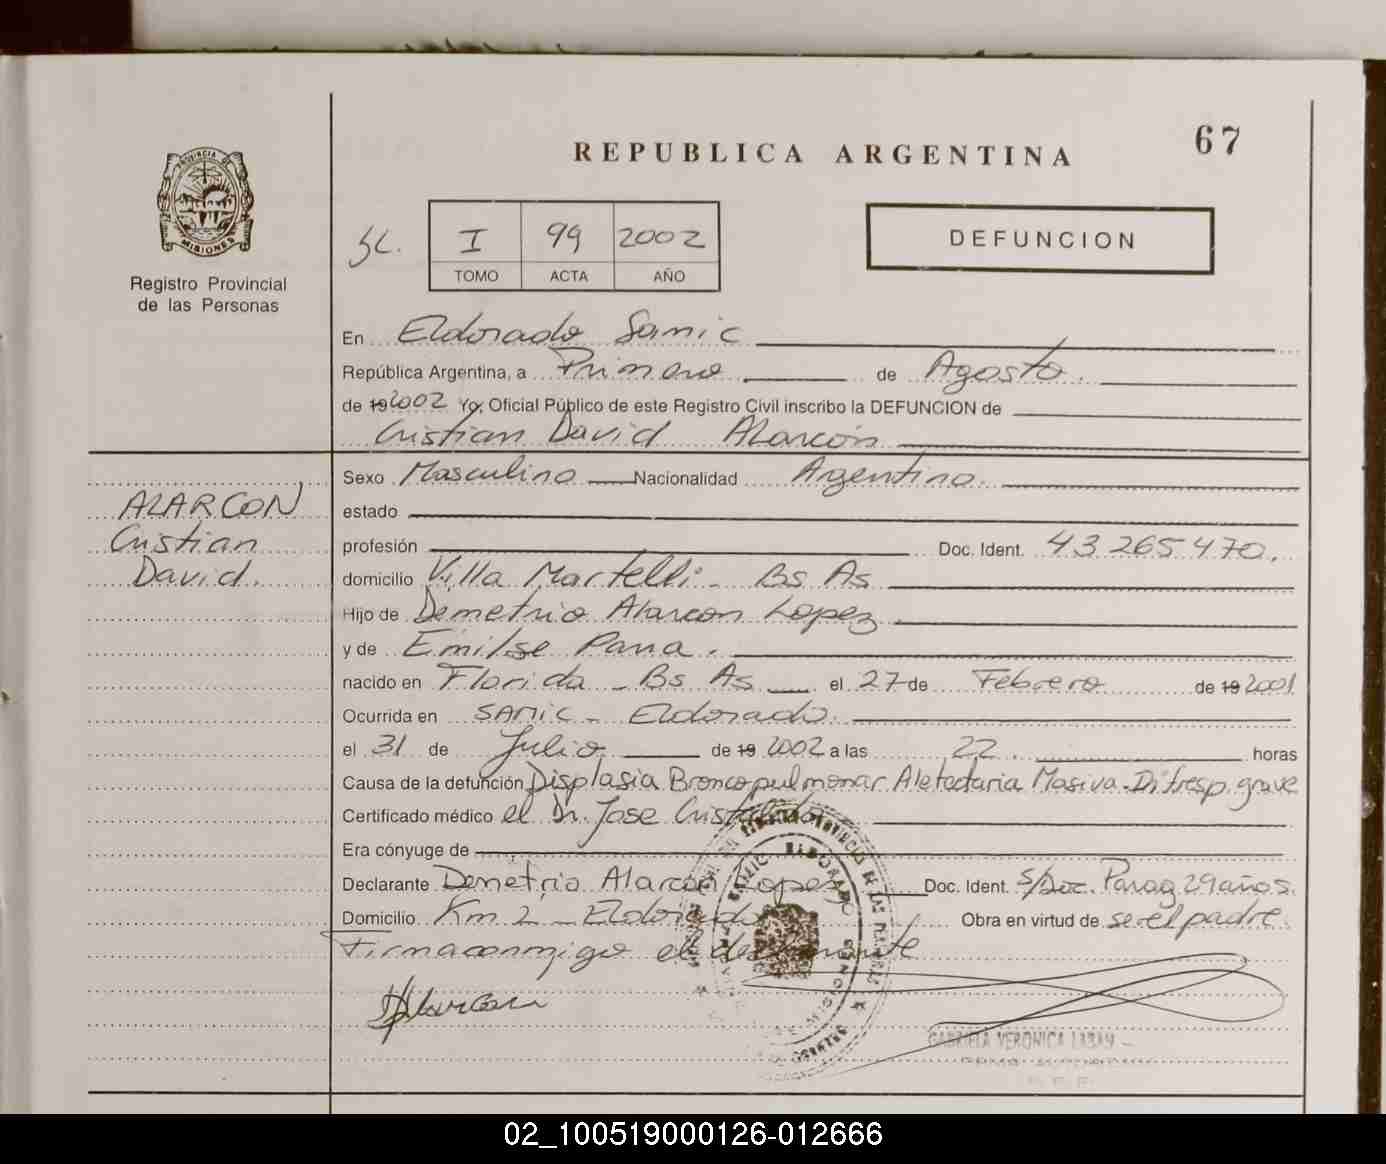 67
REPUBLICA ARGENTINA
PROVINCIA DE
MISIONES
Registro Provincial
de las Personas
SC. I 99 2002
TOMO ACTA AÑO
DEFUNCION
En Eldorado Samic
República Argentina, a Primero de Agosto.
de 19 2002 Yo, Oficial Público de este Registro Civil inscribo la DEFUNCION de
Cristian David Alarcón
ALARCON
Cristian
David.
Sexo Masculino Nacionalidad Argentina.
estado
profesión Doc. Ident. 43 265 470.
domicilio Villa Martelli - Bs As
Hijo de Demetrio Alarcon Lopez
y de Emilse Parra.
nacido en Florida - Bs As el 27 de Febrero de 19 2001
Ocurrida en SAMIC - Eldorado.
el 31 de Julio de 19 2002 a las 22. horas
Causa de la defunción Displasia Broncopulmonar Aletectaria Masiva - Dif resp. grave
Certificado médico el Dr. Jose Cristaldo
Era cónyuge de
Declarante Demetrio Alarcon Lopez Doc. Ident. S/Doc. Parag 29 años.
Domicilio Km 2 - Eldorado Obra en virtud de ser el padre.
Firma conmigo el declarante
DAlarcon
GABRIELA VERONICA
02_100519000126-012666